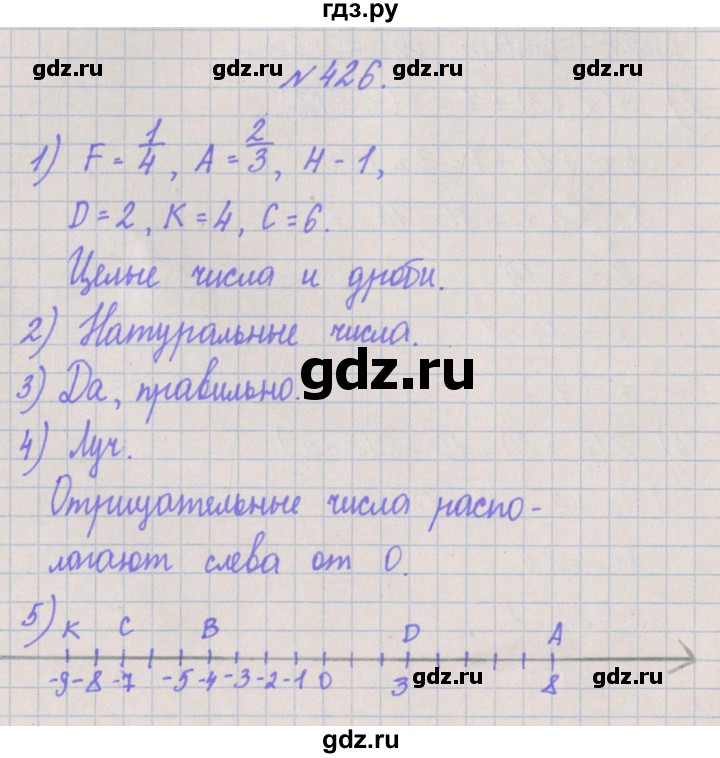 гдз.ру
gdz.ru gdz.ru gdz.ru
№ 426.
1) F = 1/4, A = 2/3, H - 1,
D = 2, K = 4, C = 6.
Целые числа и дроби.
2) Натуральные числа.
gdz.ru
3) Да, правильно.
4) Луч.
Отрицательные числа распо-
логают слева от 0.
5) K C B D A
-9 -8 -7 -5 -4 -3 -2 -1 0 3 8
gdz.ru gdz.ru gdz.ru
gdz.ru